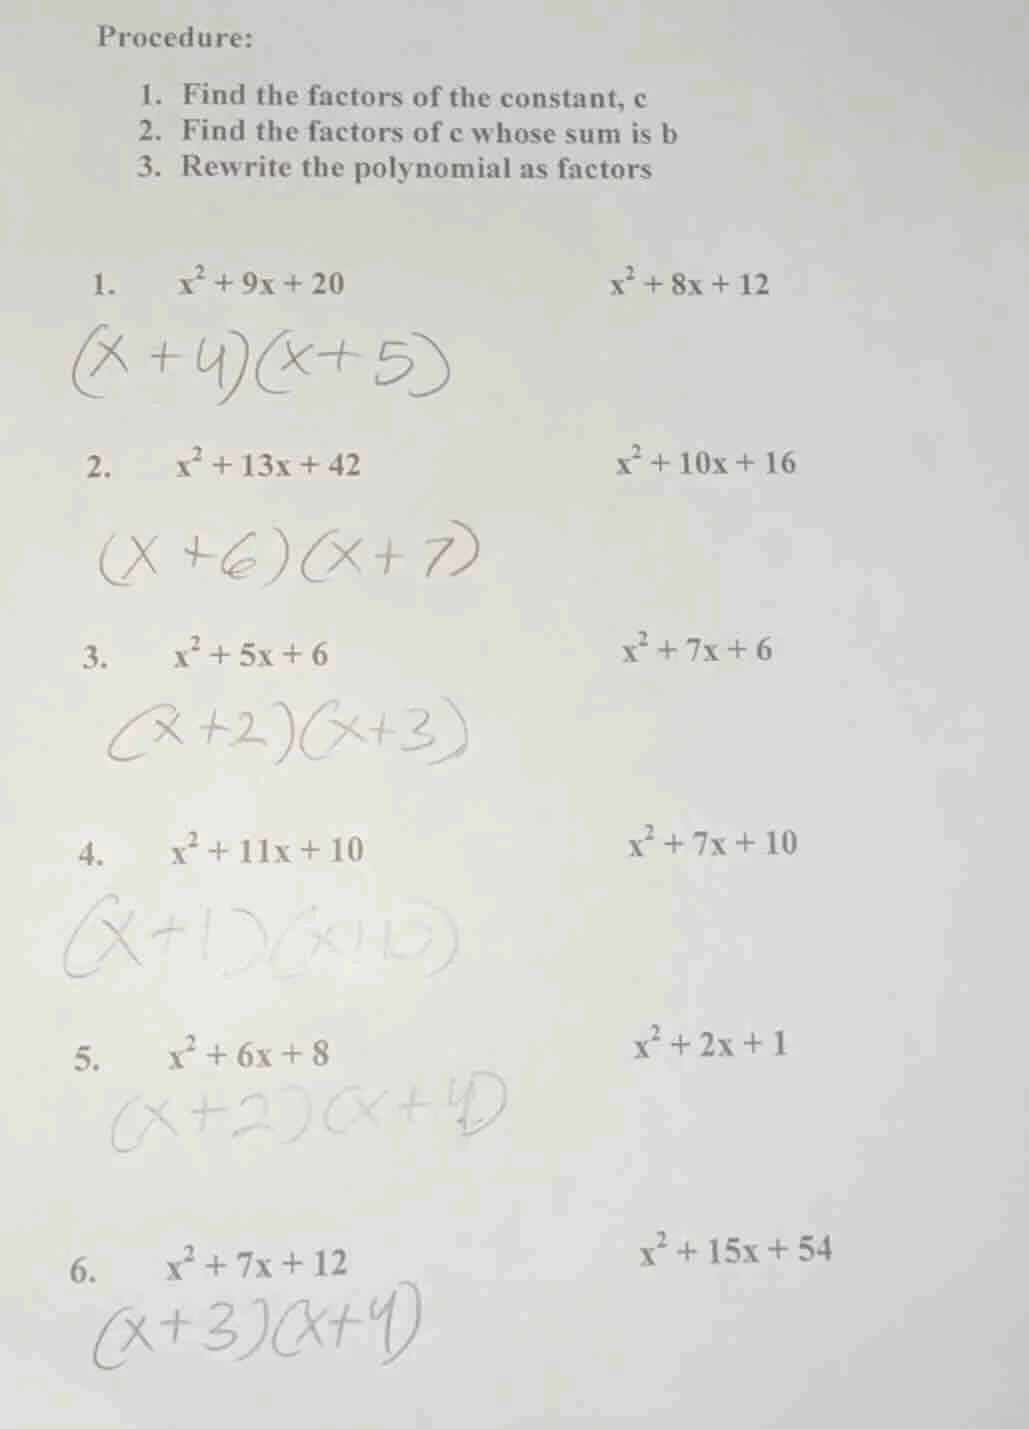 Procedure:
1. Find the factors of the constant, c
2. Find the factors of c whose sum is b
3. Rewrite the polynomial as factors
1. x² + 9x + 20 x² + 8x + 12
(x + 4)(x + 5)
2. x² + 13x + 42 x² + 10x + 16
(x + 6)(x + 7)
3. x² + 5x + 6 x² + 7x + 6
(x + 2)(x + 3)
4. x² + 11x + 10 x² + 7x + 10
(x + 1)(x + 10)
5. x² + 6x + 8 x² + 2x + 1
(x + 2)(x + 4)
6. x² + 7x + 12 x² + 15x + 54
(x + 3)(x + 4)